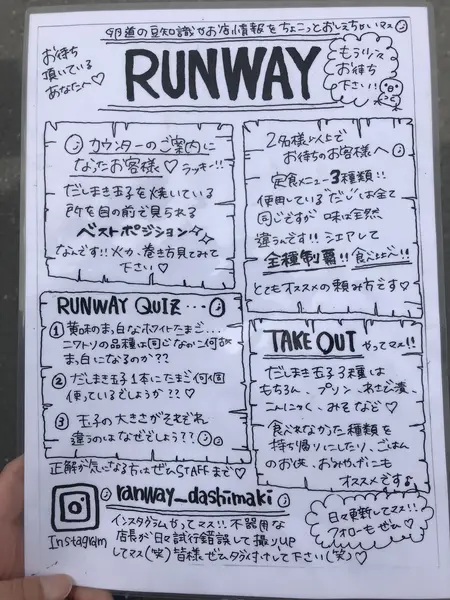 卵道の豆知識やお店情報をちょこっとおしえちゃいマス
お待ち
頂いている
あなたへ♡
RUNWAY
もう少々
お待ち
下さい!!
カウンターのご案内に
なったお客様♡ラッキー!!
だしまき玉子を焼いている
所を目の前で見られる
ベストポジション
なんです!!火力、巻き方見てみて
下さい♡
2名様以上で
お待ちのお客様へ
定食メニュー3種類!!
使用している"だし"は全て
同じですが 味は全然
違うんです!! シェアして
全種制覇!! 食べよう!!
とてもオススメの頼み方です♡
RUNWAY QUIZ...
① 黄味のまっ白なホワイトたまご...
ニワトリの品種は同じなのに何故
まっ白になるのか??
② だしまき玉子1本にたまご何個
使っているでしょうか??♡
③ 玉子の大きさがそれぞれ
違うのはなぜでしょう??
正解が気になる方はぜひSTAFFまで♡
TAKE OUT やってマス!!
だしまき玉子3種は
もちろん、プリン、わさび漬、
こんにゃく、みそなど♡
食べれなかった種類を
持ち帰りにしたり、ごはん
のお供、おみやげにも
オススメですよ
Instagram
ranway_dashimaki
インスタグラムやってマス!! 不器用な
店長が日々試行錯誤して撮りup
してマス(笑) 皆様ぜひタグ付けして下さい(笑)♡
日々更新してマス!!
フォローもぜひ♡